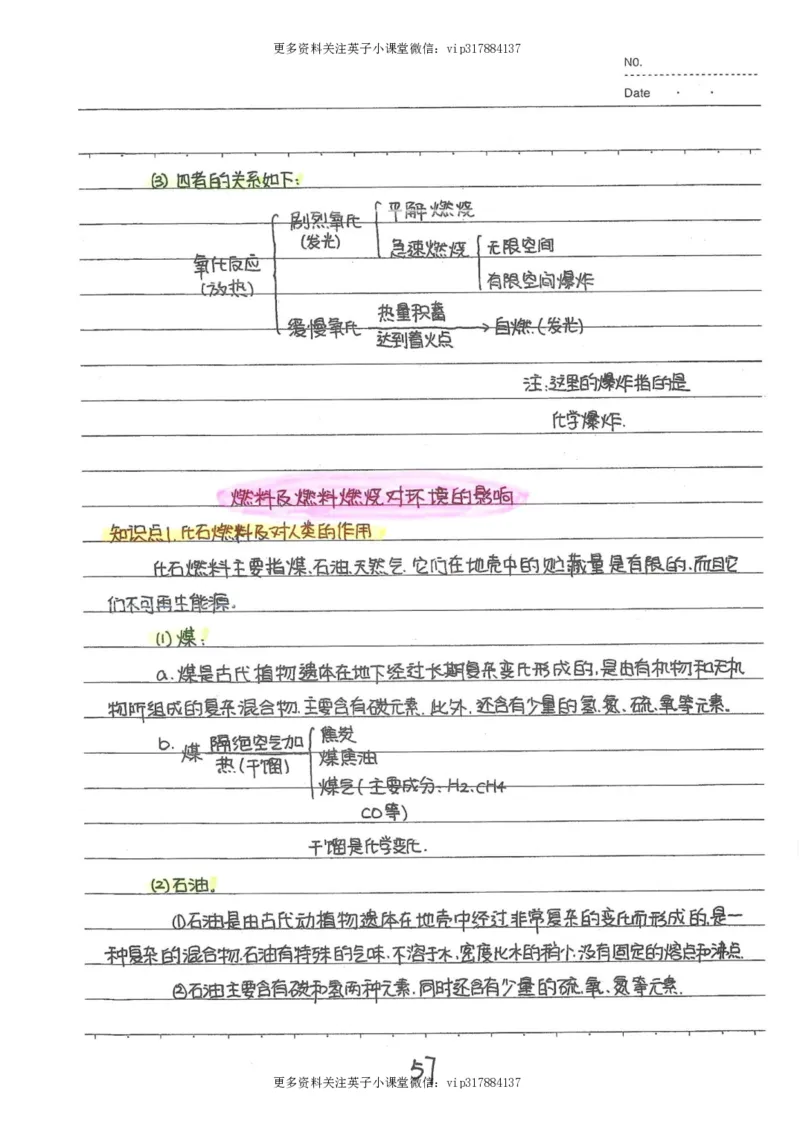 更多资料关注英子小课堂微信：vip317884137
NO.
Date
(3) 四者的关系如下：
剧烈氧化 平解燃烧
(发光) 急速燃烧 无限空间
氧化反应
(放热) 有限空间爆炸
缓慢氧化 热量积蓄 自燃(发光)
达到着火点
注：这里的爆炸指的是
化学爆炸.
燃料及燃料燃烧对环境的影响
知识点1. 化石燃料及对人类的作用
化石燃料主要指煤、石油、天然气. 它们在地壳中的贮藏量是有限的，而且它
们不可再生能源。
(1)煤：
a.煤是古代植物遗体在地下经过长期复杂变化形成的，是由有机物和无机
物所组成的复杂混合物.主要含有碳元素. 此外，还含有少量的氢、氮、硫、氧等元素。
b. 煤 隔绝空气加 焦炭
热(干馏) 煤焦油
煤气(主要成分：H2、CH4
CO等)
干馏是化学变化.
(2)石油。
①石油是由古代动植物遗体在地壳中经过非常复杂的变化而形成的，是一
种复杂的混合物.石油有特殊的气味，不溶于水，密度比水的稍小，没有固定的熔点和沸点
②石油主要含有碳和氢两种元素，同时还含有少量的硫、氧、氮等元素.
57
更多资料关注英子小课堂微信：vip317884137